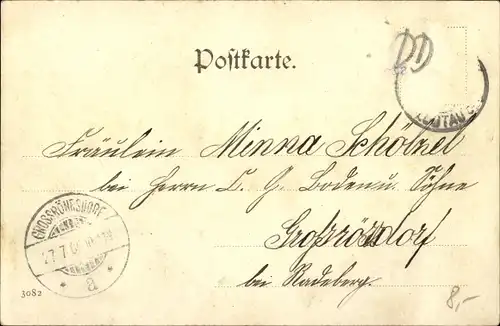 DD
Postkarte.
Fräulein Minna Schölzel
bei Herrn C. G. Boden u. Söhne
Großröhrsdorf
bei Radeberg.
GROSSRÖHRSDORF
27.7.
a
3082
8,-